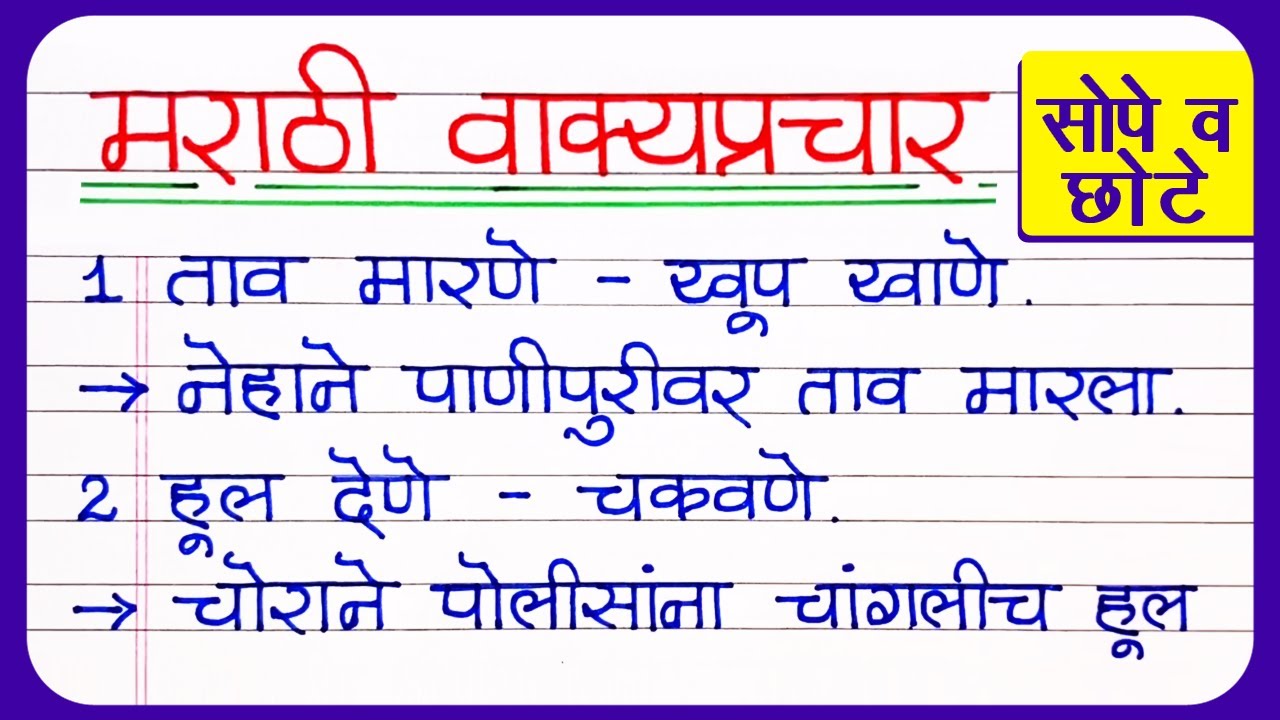 मराठी वाक्यप्रचार
सोपे व
छोटे
1 ताव मारणे - खूप खाणे.
→ नेहाने पाणीपुरीवर ताव मारला.
2 हूल देणे - चकवणे.
→ चोराने पोलीसांना चांगलीच हूल